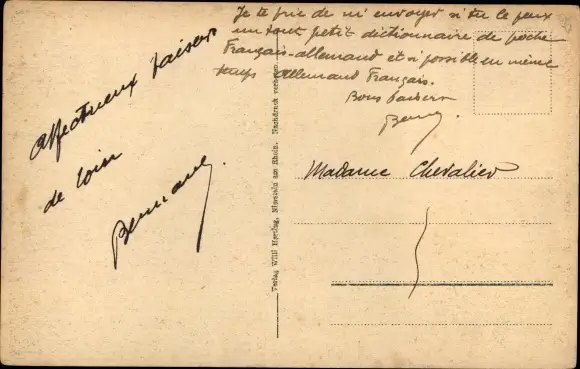 Affectueux baisers
de loin
Je te prie de m'envoyer si tu le peux
un tout petit dictionnaire de poche
Français-allemand et si possible en même
temps allemand Français.
Bons baisers
Madame Chevalier
Verlag Willi Herzog, Nierstein am Rhein. Nachdruck verboten.